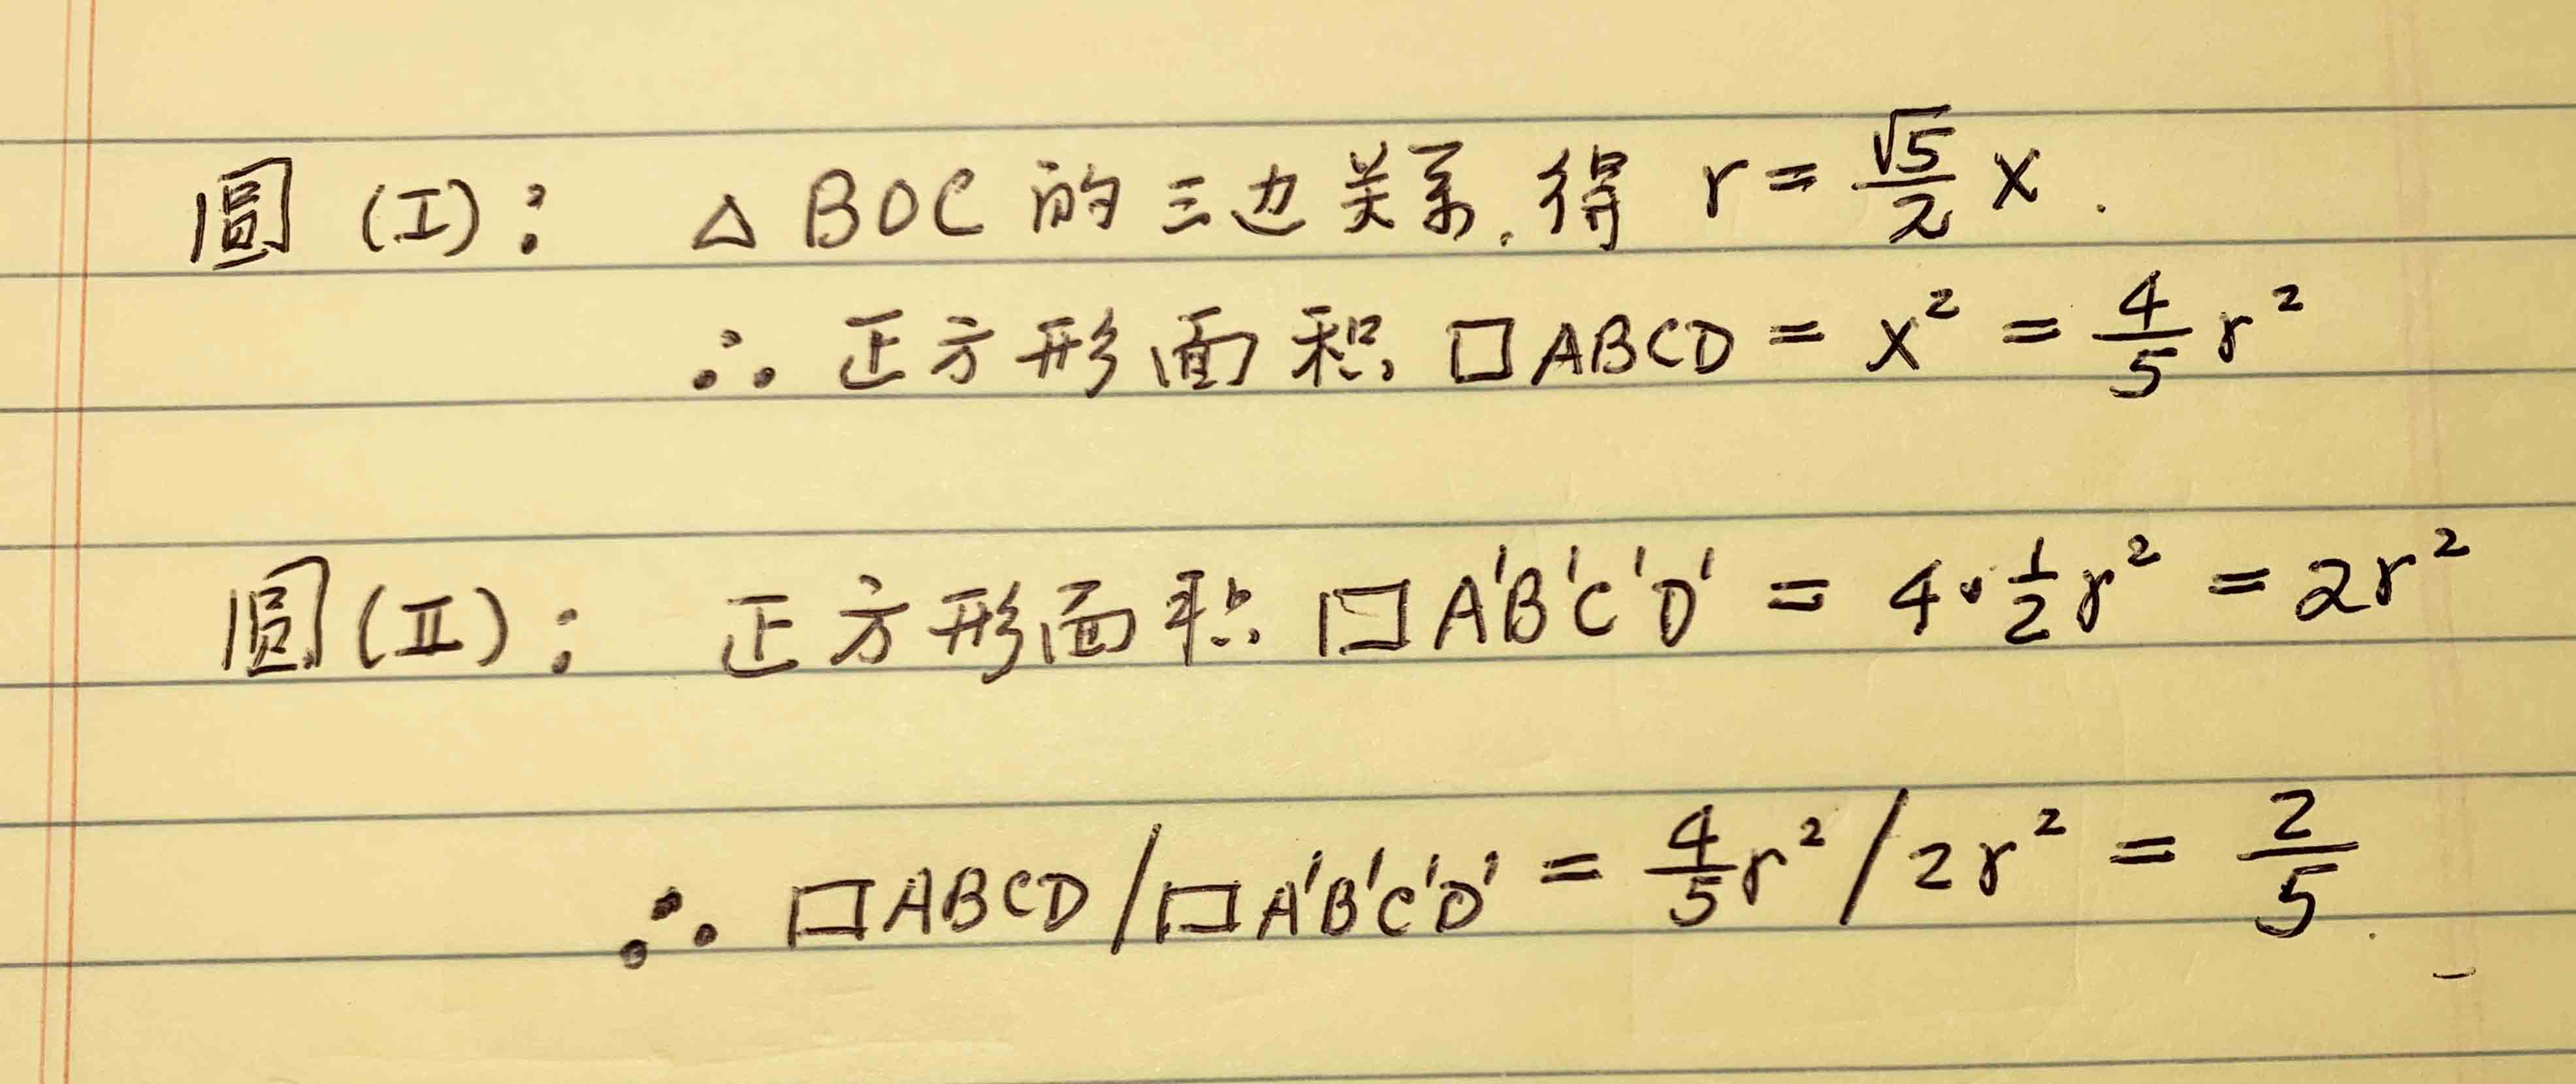 圆 (I): △ BOC 的三边关系, 得 r = √5/2 x .
∴ 正方形面积 □ABCD = x² = 4/5 r²
圆 (II): 正方形面积 □A'B'C'D' = 4·1/2 r² = 2r²
∴ □ABCD/□A'B'C'D' = 4/5 r²/2r² = 2/5.